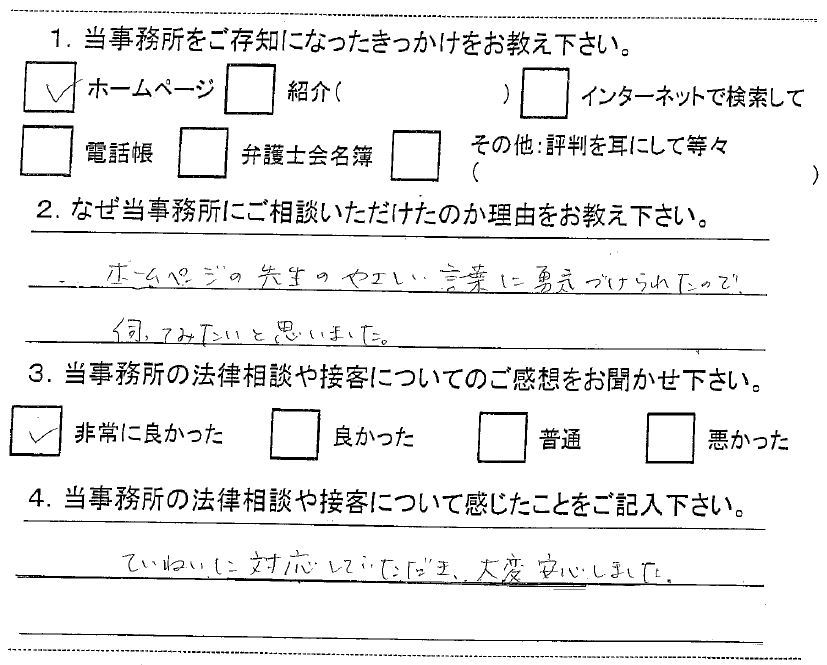 1. 当事務所をご存知になったきっかけをお教え下さい。
ホームページ 紹介( ) インターネットで検索して
電話帳 弁護士会名簿 その他:評判を耳にして等々
( )
2. なぜ当事務所にご相談いただけたのか理由をお教え下さい。
ホームページの先生のやさしい言葉に勇気づけられたので、
伺ってみたいと思いました。
3. 当事務所の法律相談や接客についてのご感想をお聞かせ下さい。
非常に良かった 良かった 普通 悪かった
4. 当事務所の法律相談や接客について感じたことをご記入下さい。
ていねいに対応していただき、大変安心しました。